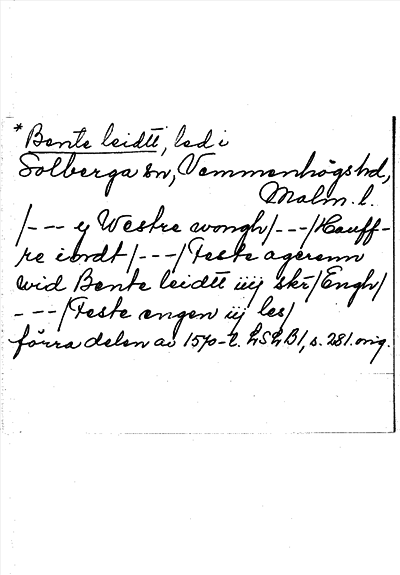 * Bente leidtt, led i
Solberga sn, Vemmenhögs hd,
Malm. l.
/--- y Westre wongh/---/Hauff-
re iordt/---/Feste agerenn
wid Bente leidtt iiij skr/Engh/
---/Feste engen iij les/
förra delen av 1570-t. LSLB1, s. 281. orig.